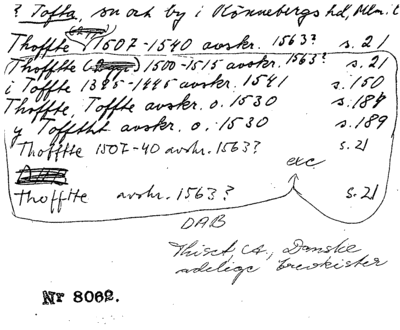 ? Tofta, sn och by i Rönnebergs hd, Mlm. l
Thoffte 1507-1540 avskr. 1563? s. 21
Thoffte 1500-1515 avskr. 1563? s. 21
i Toffte 1395-1445 avskr. 1541 s. 150
Thoffte, Toffte avskr. o. 1530 s. 184
y Tofftht avskr. o. 1530 s. 189
Thoffte 1507-40 avskr. 1563? s. 21
exc
Thoffte avskr. 1563? s. 21
DAB
Thiset CA, Danske
adelige brevkister
Nr 8062.